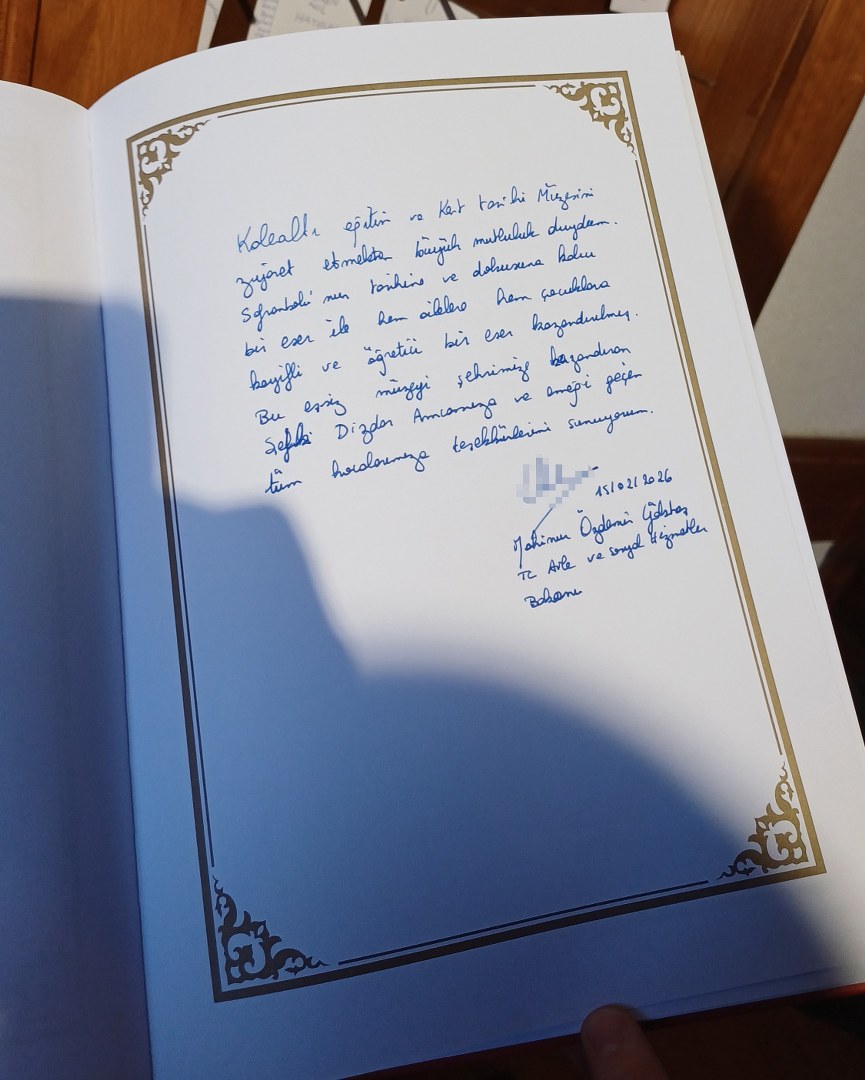 Kalealtı eğitim ve Kent tarihi Müzesini
ziyaret etmekten büyük mutluluk duydum.
Safranbolu'nun tarihine ve dokusuna
bir eser ile hem ailelere hem çocuklara
keyifli ve öğretici bir eser kazandırılmış.
Bu eşsiz müzeyi şehrimize kazandıran
Şefki Dizdar Amcamıza ve emeği geçen
tüm hocalarımıza teşekkürlerimi sunuyorum.
15/02/2026
Mahinur Özdemir Göktaş
TC Aile ve Sosyal Hizmetler
Bakanı